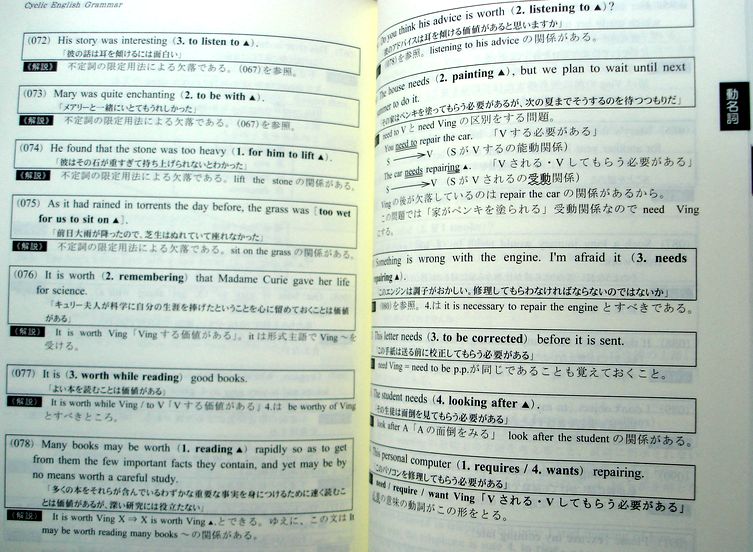 Cyclic English Grammar
(072) His story was interesting (3. to listen to ▲).
「彼の話は耳を傾けるには面白い」
《解説》 不定詞の限定用法による欠落である。(067)を参照。
(073) Mary was quite enchanting (2. to be with ▲).
「メアリーと一緒にいてとてもうれしかった」
《解説》 不定詞の限定用法による欠落である。(067)を参照。
(074) He found that the stone was too heavy (1. for him to lift ▲).
「彼はその石が重すぎて持ち上げられないとわかった」
《解説》 不定詞の限定用法による欠落である。lift the stoneの関係がある。
(075) As it had rained in torrents the day before, the grass was [too wet
for us to sit on ▲].
「前日大雨が降ったので、芝生はぬれていて座れなかった」
《解説》 不定詞の限定用法による欠落である。sit on the grassの関係がある。
(076) It is worth (2. remembering) that Madame Curie gave her life
for science.
「キュリー夫人が科学に自分の生涯を捧げたということを心に留めておくことは価値
がある」
《解説》 It is worth Ving「Vingする価値がある」。itは形式主語でVing〜を
受ける。
(077) It is (3. worth while reading) good books.
「よい本を読むことは価値がある」
《解説》 It is worth while Ving / to V「Vする価値がある」4.は be worthy of Ving
とすべきところ。
(078) Many books may be worth (1. reading ▲) rapidly so as to get
from them the few important facts they contain, and yet may be by
no means worth a careful study.
「多くの本をそれらが含んでいるわずかな重要な事実を身につけるために速く読むこ
とは価値があるが、深い研究には役立たない」
《解説》 It is worth Ving X ⇒ X is worth Ving▲.とできる。ゆえに、この文はIt
may be worth reading many books 〜の関係がある。
Do you think his advice is worth (2. listening to ▲)?
「彼のアドバイスは耳を傾ける価値があると思いますか」
(078)を参照。listening to his adviceの関係がある。
The house needs (2. painting ▲), but we plan to wait until next
to do it.
「その家はペンキを塗ってもらう必要があるが、次の夏までそうするのを待つつもりだ」
need to Vとneed Vingの区別をする問題。
You need to repair the car. 「Vする必要がある」
S → V (SがVするの能動関係)
The car needs repairing ▲. 「Vされる・Vしてもらう必要がある」
S → V (SがVされるの受動関係)
Vingの後が欠落しているのはrepair the carの関係があるから。
この問題では「家がペンキを塗られる」受動関係なので need Ving
にする。
Something is wrong with the engine. I'm afraid it (3. needs
repairing ▲).
「このエンジンは調子がおかしい。修理してもらわなければならないのではないか」
(080)を参照。4.はit is necessary to repair the engineとすべきである。
This letter needs (3. to be corrected) before it is sent.
「この手紙は送る前に校正してもらう必要がある」
need Ving = need to be p.p.が同じであることも覚えておくこと。
The student needs (4. looking after ▲).
「その生徒は面倒を見てもらう必要がある」
look after A「Aの面倒をみる」 look after the studentの関係がある。
This personal computer (1. requires / 4. wants) repairing.
「このパソコンを修理してもらう必要がある」
need / require / want Ving「Vされる・Vしてもらう必要がある」
の意味の動詞がこの形をとる。
動名詞